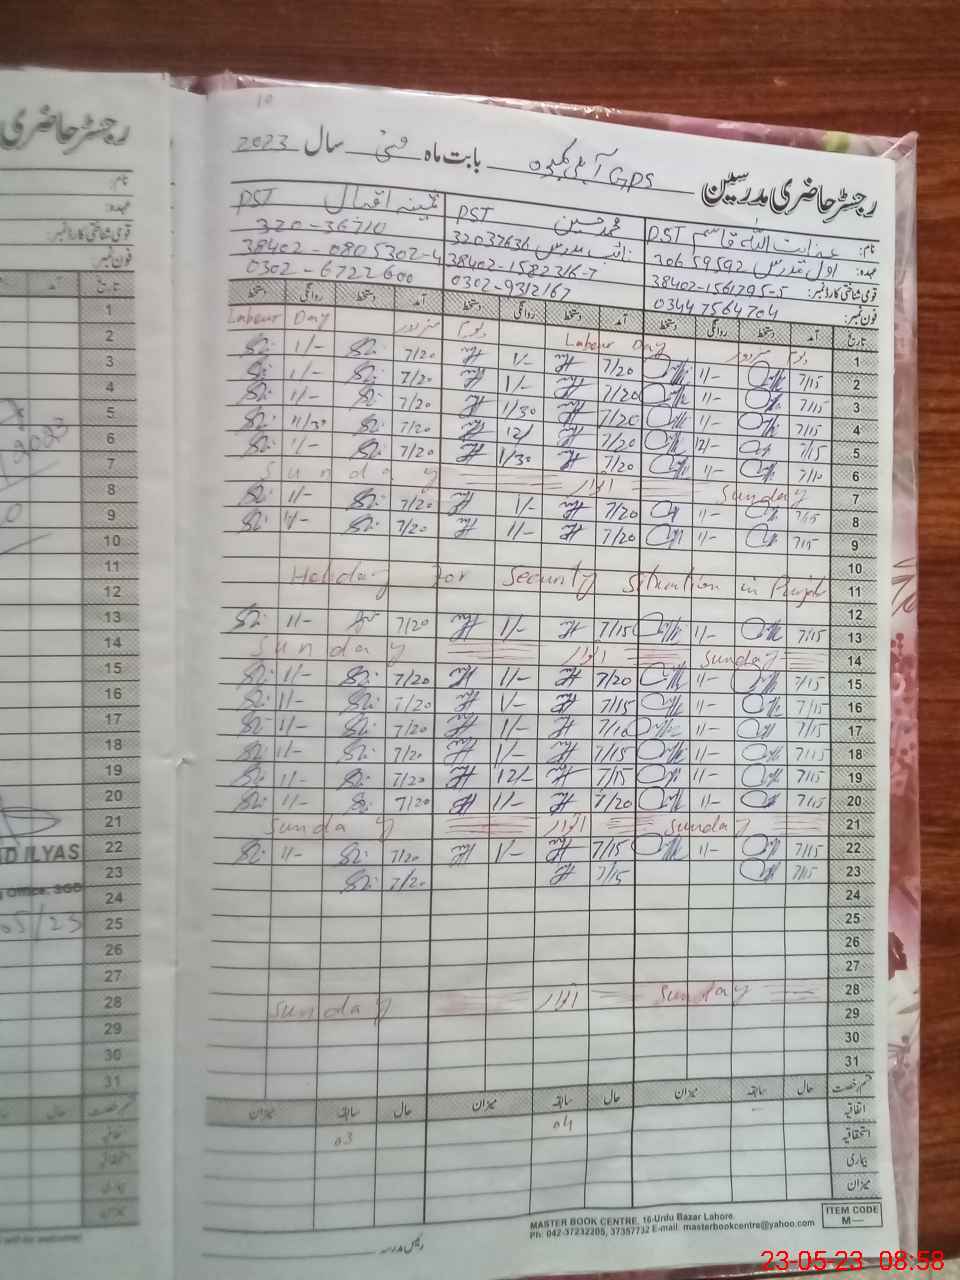 رجسٹر حاضری مدرسین GPS بابت ماہ مئی سال 2023
نام: عنایت اللہ قاسم PST محمد حسین PST ثمینہ اقبال PST
عہدہ: اول مدرس 30659592 نائب مدرس 32037636 320-36710
قومی شناختی کارڈ نمبر: 38402-1561795-5 38402-1582316-7 38402-0805302-4
فون نمبر: 03447564704 0302-9312167 0302-6722600
تاریخ آمد دستخط روانگی دستخط آمد دستخط روانگی دستخط آمد دستخط روانگی دستخط
1 یوم مزدور Labour Day یوم مزدور Labour Day
2 7/15 11/- 7/20 1/- 7/20 1/-
3 7/15 11/- 7/20 1/- 7/20 1/-
4 7/15 11/- 7/20 1/30 7/20 11/-
5 7/15 12/- 7/20 12/ 7/20 11/30
6 7/10 11/- 7/20 1/30 7/20 1/-
7 Sunday اتوار Sunday
8 7/15 11/- 7/20 1/- 7/20 11/-
9 7/15 11/- 7/20 11/- 7/20 11/-
10
11 Holiday for Security Situation in Punjab
12
13 7/15 11/- 7/15 1/- 7/20 11/-
14 Sunday اتوار Sunday
15 7/15 11/- 7/20 11/- 7/20 11/-
16 7/15 11/- 7/15 1/- 7/20 11/-
17 7/15 11/- 7/10 11/- 7/20 11/-
18 7/15 11/- 7/15 1/- 7/20 11/-
19 7/15 11/- 7/15 12/- 7/20 11/-
20 7/15 11/- 7/20 1/- 7/20 11/-
21 Sunday اتوار Sunday
22 7/15 11/- 7/15 1/- 7/20 11/-
23 7/15 7/15 7/20
24
25
26
27
28 Sunday اتوار Sunday
29
30
31
قسم رخصت حال سابقہ میزان حال سابقہ میزان حال سابقہ میزان
اتفاقیہ - 04 03
استحقاقیہ
بیماری
میزان
رئیس مدرسہ
MASTER BOOK CENTRE, 16-Urdu Bazar Lahore.
Ph: 042-37232205, 37357732 E-mail: masterbookcentre@yahoo.com
ITEM CODE
M—
رجسٹر حاضری
نام:
عہدہ:
قومی شناختی کارڈ نمبر:
فون نمبر:
تاریخ
1
2
3
4
5
6 2023
7
8
9
10
11
12
13
14
15
16
17
18
19
20
21
22 ILYAS
23 Office, SGD
24
25 05/23
26
27
28
29
30
31
قسم رخصت حال
23-05-23 08:58